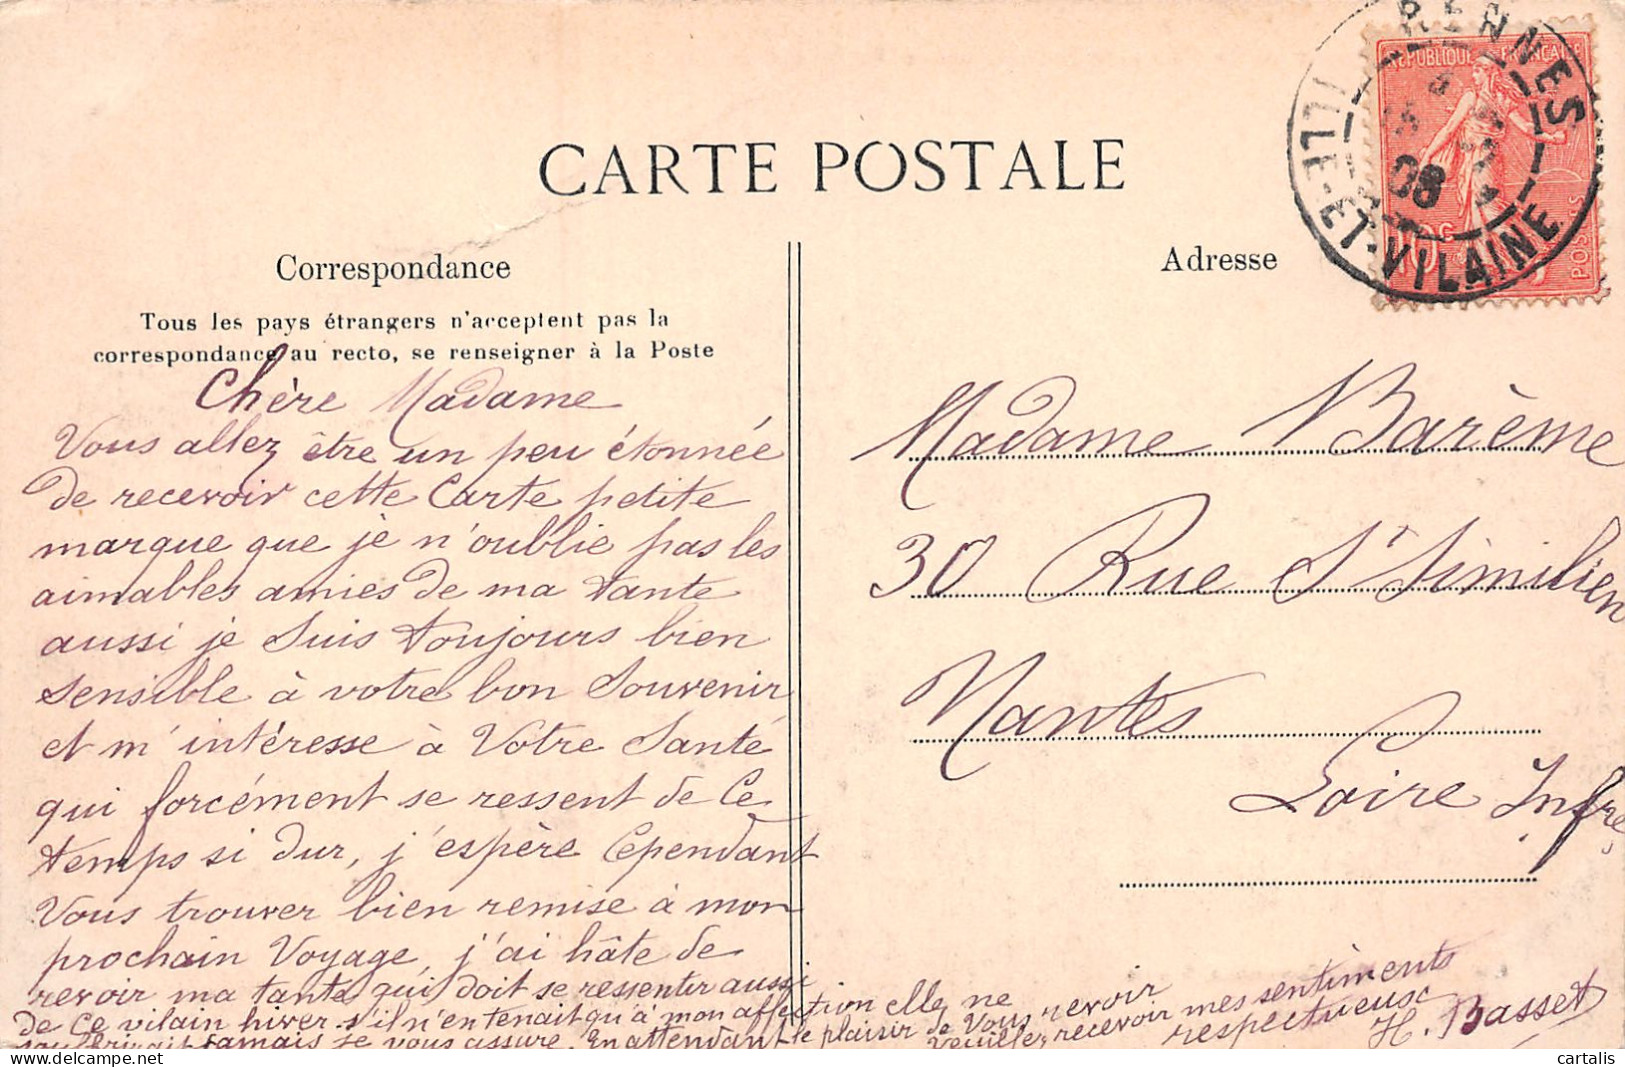 CARTE POSTALE
Correspondance
Tous les pays étrangers n'acceptent pas la
correspondance au recto, se renseigner à la Poste
Chère Madame
Vous allez être un peu étonnée
de recevoir cette Carte petite
marque que je n'oublie pas les
aimables amies de ma tante
aussi je suis toujours bien
sensible à votre bon souvenir
et m'intéresse à Votre Santé
qui forcément se ressent de Ce
temps si dur, j'espère Cependant
Vous trouver bien remise à mon
prochain Voyage, j'ai hâte de
revoir ma tante qui doit se ressentir aussi
de Ce vilain hiver s'il n'en tenait qu'à mon affection elle ne
souffrirait jamais je vous assure. En attendant le plaisir de Vous revoir
Veuillez recevoir mes sentiments
respectueux
H. Basset
Adresse
Madame Barème
30 Rue St Similien
Nantes
Loire Infre
RENNES
ILLE-ET-VILAINE
08
REPUBLIQUE FRANÇAISE
10c
POSTES
cartalis
delcampe.net